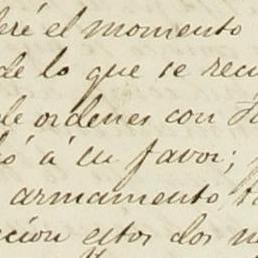 eré el momento
de lo que se recu
de ordenes con
ó á su favor;
armamento
cion estos dos